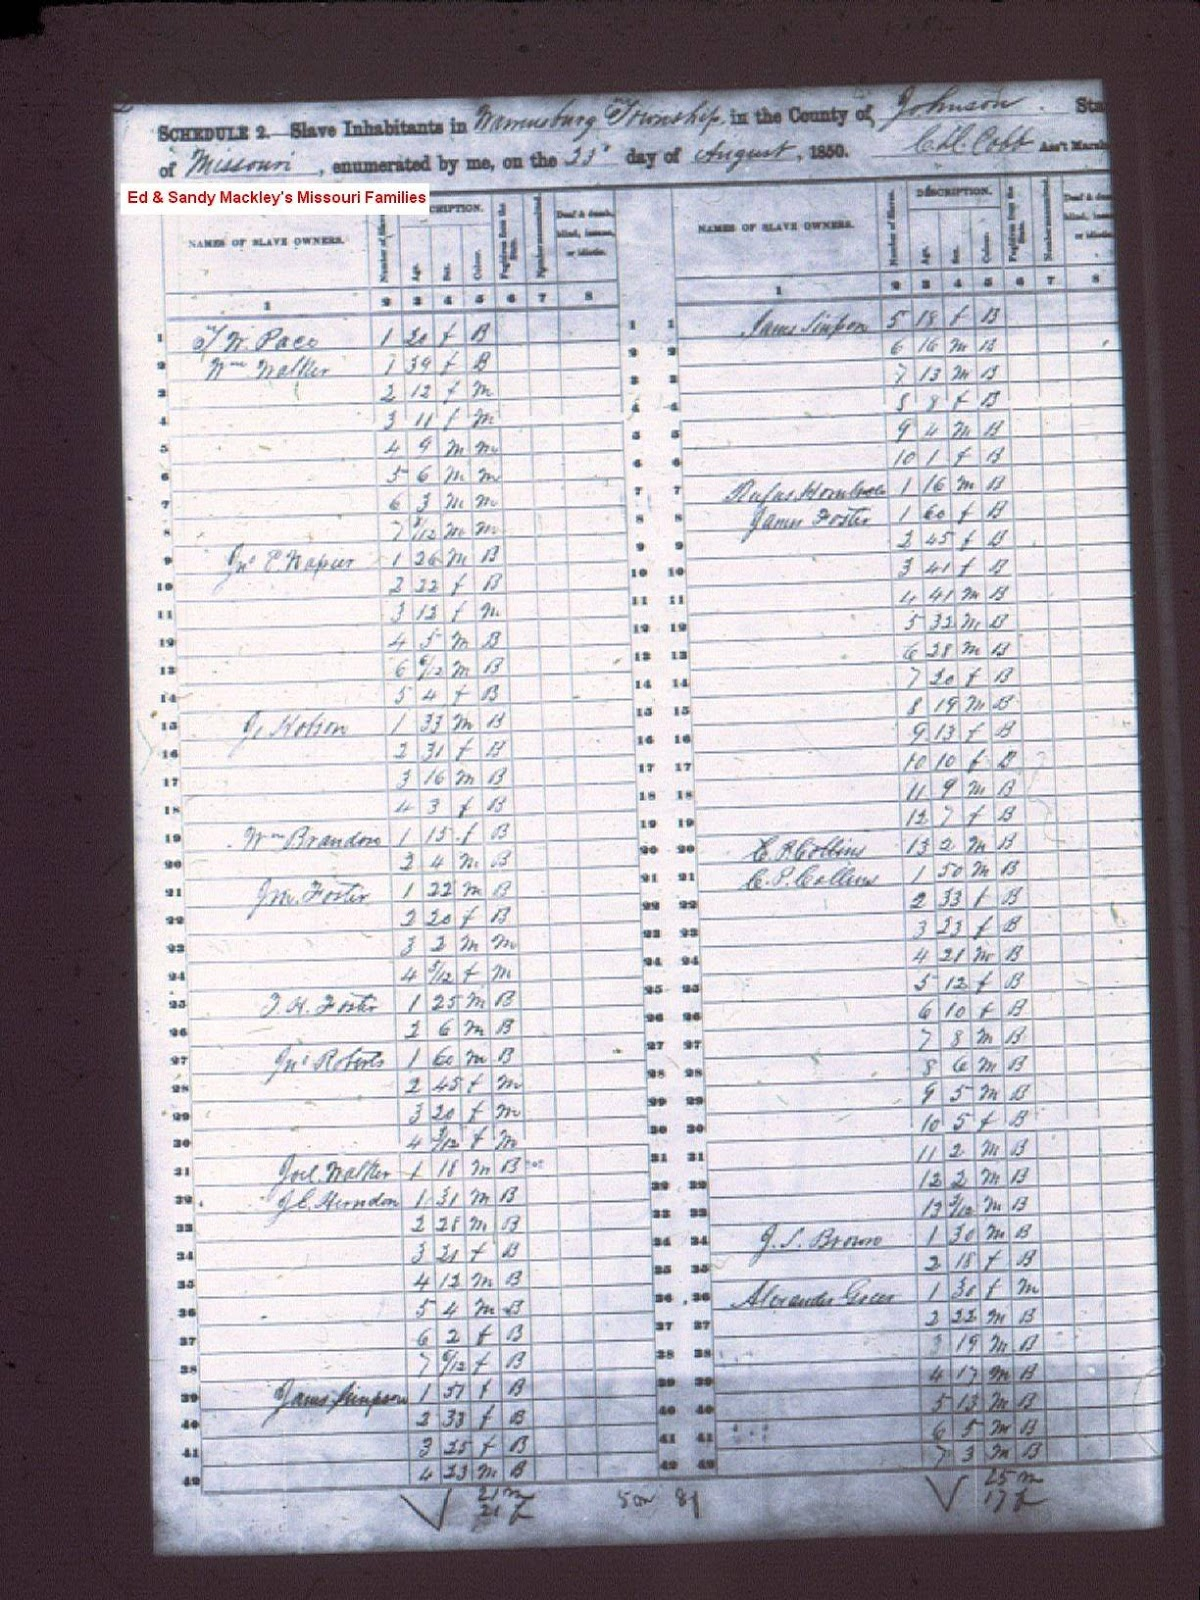 SCHEDULE 2. Slave Inhabitants in Warrensburg Township in the County of Johnson. Sta
of Missouri, enumerated by me, on the 23d day of August, 1850. C.H. Cobb Ass't Marsh
Ed & Sandy Mackley's Missouri Families
NAMES OF SLAVE OWNERS. Number of Slaves. DESCRIPTION. Age. Sex. Colour. Fugitives from the State. Number manumitted. Deaf & dumb, blind, insane, or idiotic.
1 2 3 4 5 6 7 8
1 W. Pace 1 20 f B 1
2 Wm Walker 1 39 f B 2
3 2 12 f M 3
4 3 11 f M 4
5 4 9 M M 5
6 5 6 M M 6
7 6 3 M M 7
8 7 /12 M M 8
9 Jno E Napier 1 26 M B 9
10 2 22 f B 10
11 3 12 f M 11
12 4 5 M B 12
13 6 /12 M B 13
14 5 4 f B 14
15 J. 1 33 M B 15
16 2 31 f B 16
17 3 16 M B 17
18 4 3 f B 18
19 Wm Brandon 1 15 f B 19
20 2 4 M B 20
21 Foster 1 22 M B 21
22 2 20 f B 22
23 3 2 M M 23
24 4 /12 f M 24
25 Foster 1 25 M B 25
26 2 6 M B 26
27 Jno Roberts 1 60 M B 27
28 2 45 f M 28
29 3 20 f M 29
30 4 /12 f M 30
31 Joel Walker 1 18 M B 31
32 J.C. Herndon 1 31 M B 32
33 2 28 M B 33
34 3 21 f B 34
35 4 12 M B 35
36 5 4 M B 36
37 6 2 f B 37
38 7 /12 f B 38
39 James Simpson 1 57 f B 39
40 2 33 f B 40
41 3 25 f B 41
42 4 23 M B 42
21 m
21 f
NAMES OF SLAVE OWNERS. Number of Slaves. DESCRIPTION. Age. Sex. Colour. Fugitives from the State. Number manumitted. Deaf & dumb, blind, insane, or idiotic.
1 2 3 4 5 6 7 8
1 James Simpson 5 18 f B
2 6 16 M B
3 7 13 M B
4 8 8 f B
5 9 4 M B
6 10 1 f B
7 Rufus 1 16 M B
8 James Foster 1 60 f B
9 2 45 f B
10 3 41 f B
11 4 41 M B
12 5 32 M B
13 6 28 M B
14 7 20 f B
15 8 19 M B
16 9 13 f B
17 10 10 f B
18 11 9 M B
19 12 7 f B
20 Collins 13 2 M B
21 C.P. Collins 1 50 M B
22 2 33 f B
23 3 23 f B
24 4 21 M B
25 5 12 f B
26 6 10 f B
27 7 8 M B
28 8 6 M B
29 9 5 M B
30 10 5 f B
31 11 2 M B
32 12 2 M B
33 13 /12 M B
34 J.S. Brown 1 30 M B
35 2 18 f B
36 Alexander Greer 1 30 f M
37 2 22 M B
38 3 19 M B
39 4 17 M B
40 5 13 M B
41 6 5 M B
42 7 3 M B
25 m
17 f